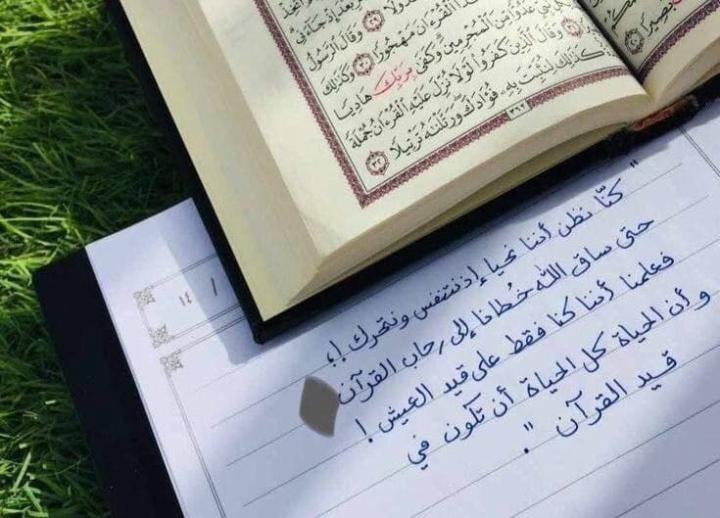 بَعْدَ إِذْ جَاءَنِي
وَقَالَ الرَّسُولُ
الْقُرْءَانَ مَهْجُورًا ٣٠ وَكَذَٰلِكَ
عَدُوًّا مِّنَ الْمُجْرِمِينَ وَكَفَىٰ بِرَبِّكَ هَادِيًا
وَقَالَ الَّذِينَ كَفَرُوا لَوْلَا نُزِّلَ عَلَيْهِ الْقُرْءَانُ جُمْلَةً
كَذَٰلِكَ لِنُثَبِّتَ بِهِ فُؤَادَكَ وَرَتَّلْنَٰهُ تَرْتِيلًا ٣٢
٣٦٢
/ ١٤
" كنّا نظن أننا نحيا إذ نتنفس ونتحرك !،
حتى ساق الله خُطانا إلى رحاب القرآن
فعلمنا أننا كنا فقط على قيد العيش !
و أن الحياة كل الحياة أن تكون في
قيد القرآن ".